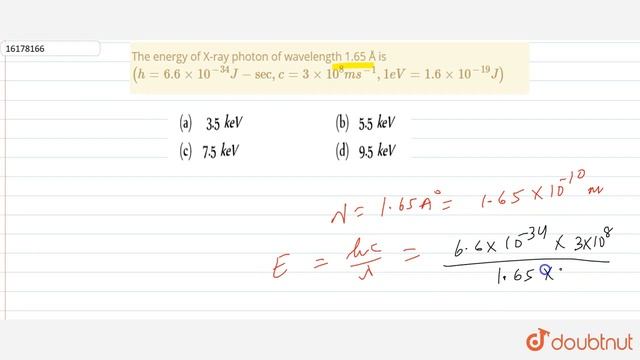 16178166
The energy of X-ray photon of wavelength 1.65 Å is
(h = 6.6 × 10⁻³⁴ J − sec, c = 3 × 10⁸ ms⁻¹, 1eV = 1.6 × 10⁻¹⁹ J)
(a) 3.5 keV (b) 5.5 keV
(c) 7.5 keV (d) 9.5 keV
λ = 1.65 A° = 1.65 × 10⁻¹⁰ m
E = hc/λ = 6.6 × 10⁻³⁴ × 3×10⁸
1.65 ×
doubtnut